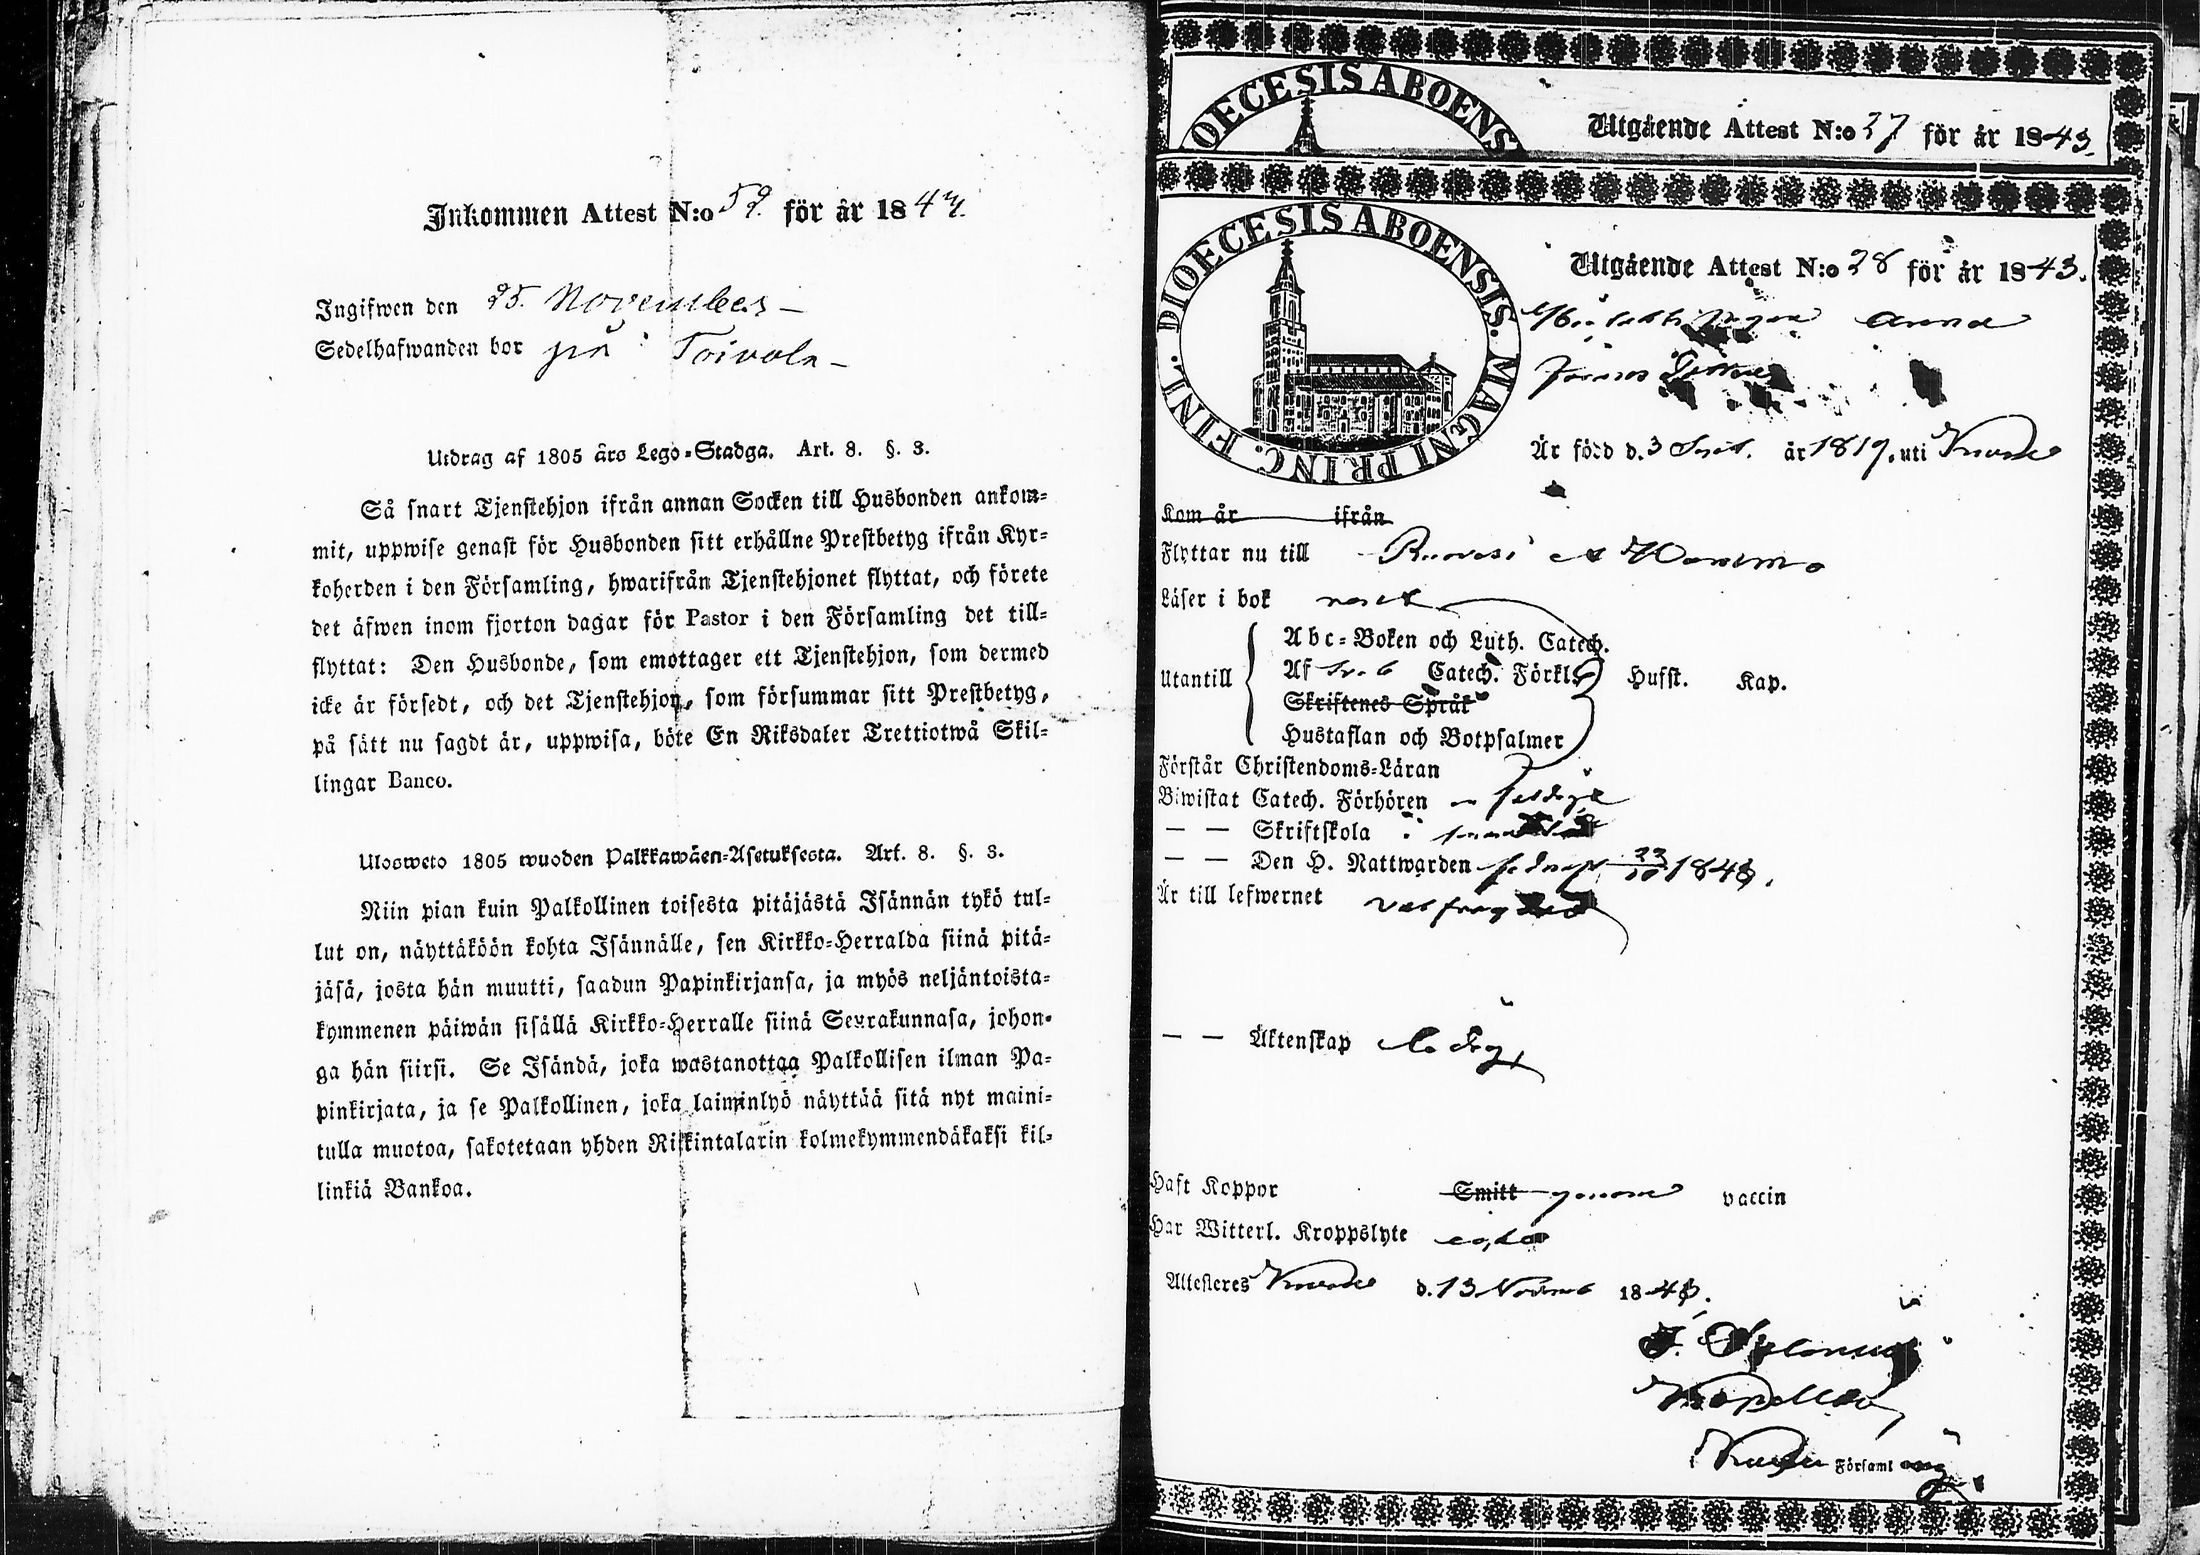 Inkommen Attest N:o 52. för år 184
Ingifwen den 25. November
Sedelhafwanden bor på Toivola
Utdrag af 1805 års Lego-Stadga. Art. 8. §. 3.
Så snart Tjenstehjon ifrån annan Socken till Husbonden ankom-
mit, uppwise genast för Husbonden sitt erhållne Prestbetyg ifrån Kyr-
koherden i den Församling, hwarifrån Tjenstehjonet flyttat, och förete
det äfwen inom fjorton dagar för Pastor i den Församling det till-
flyttat: Den Husbonde, som emottager ett Tjenstehjon, som dermed
icke är försedt, och det Tjenstehjon, som försummar sitt Prestbetyg,
på sätt nu sagdt är, uppwisa, böte En Riksdaler Trettiotwå Skil-
lingar Banco.
Ulosweto 1805 wuoden Palkkawäen-Asetuksesta. Art. 8. §. 3.
Niin pian kuin Palkollinen toisesta pitäjästä Isännän tykö tul-
lut on, näyttäköön kohta Isännälle, sen Kirkko-Herralda siinä pitä-
jäsä, josta hän muutti, saadun Papinkirjansa, ja myös neljäntoista-
kymmenen päiwän sisällä Kirkko-Herralle siinä Seurakunnasa, johon-
ga hän siirsi. Se Isändä, joka wastanottaa Palkollisen ilman Pa-
pinkirjata, ja se Palkollinen, joka laiminlyö näyttää sitä nyt maini-
tulla muotoa, sakotetaan yhden Riikintalarin kolmekymmendäkaksi kil-
linkiä Bankoa.
OECESIS ABOENS
Utgående Attest N:o 27 för år 1843.
DIOECESIS ABOENSIS. MAGNI PRINC. FINL.
Utgående Attest N:o 28 för år 1843.
Anna
Är född d. 3 Sept. år 1819. uti
Kom år ifrån
Flyttar nu till Ruovesi
Läser i bok
Utantill
Abc-Boken och Luth. Catech.
Af Catech. Förkl. Husst. Kap.
Skriftenes Språk
Hustaflan och Botpsalmer
Förstår Christendoms-Läran
Biwistat Catech. Förhören
— — Skriftskola
— — Den H. Nattwarden 1843.
Är till lefwernet välfrägdad
— — Äktenskap ledig
Haft Koppor Smitt genom vaccin
Har Witterl. Kroppslyte ej
Attesteres d. 13 Novemb 1843.
Kapellan
Församling